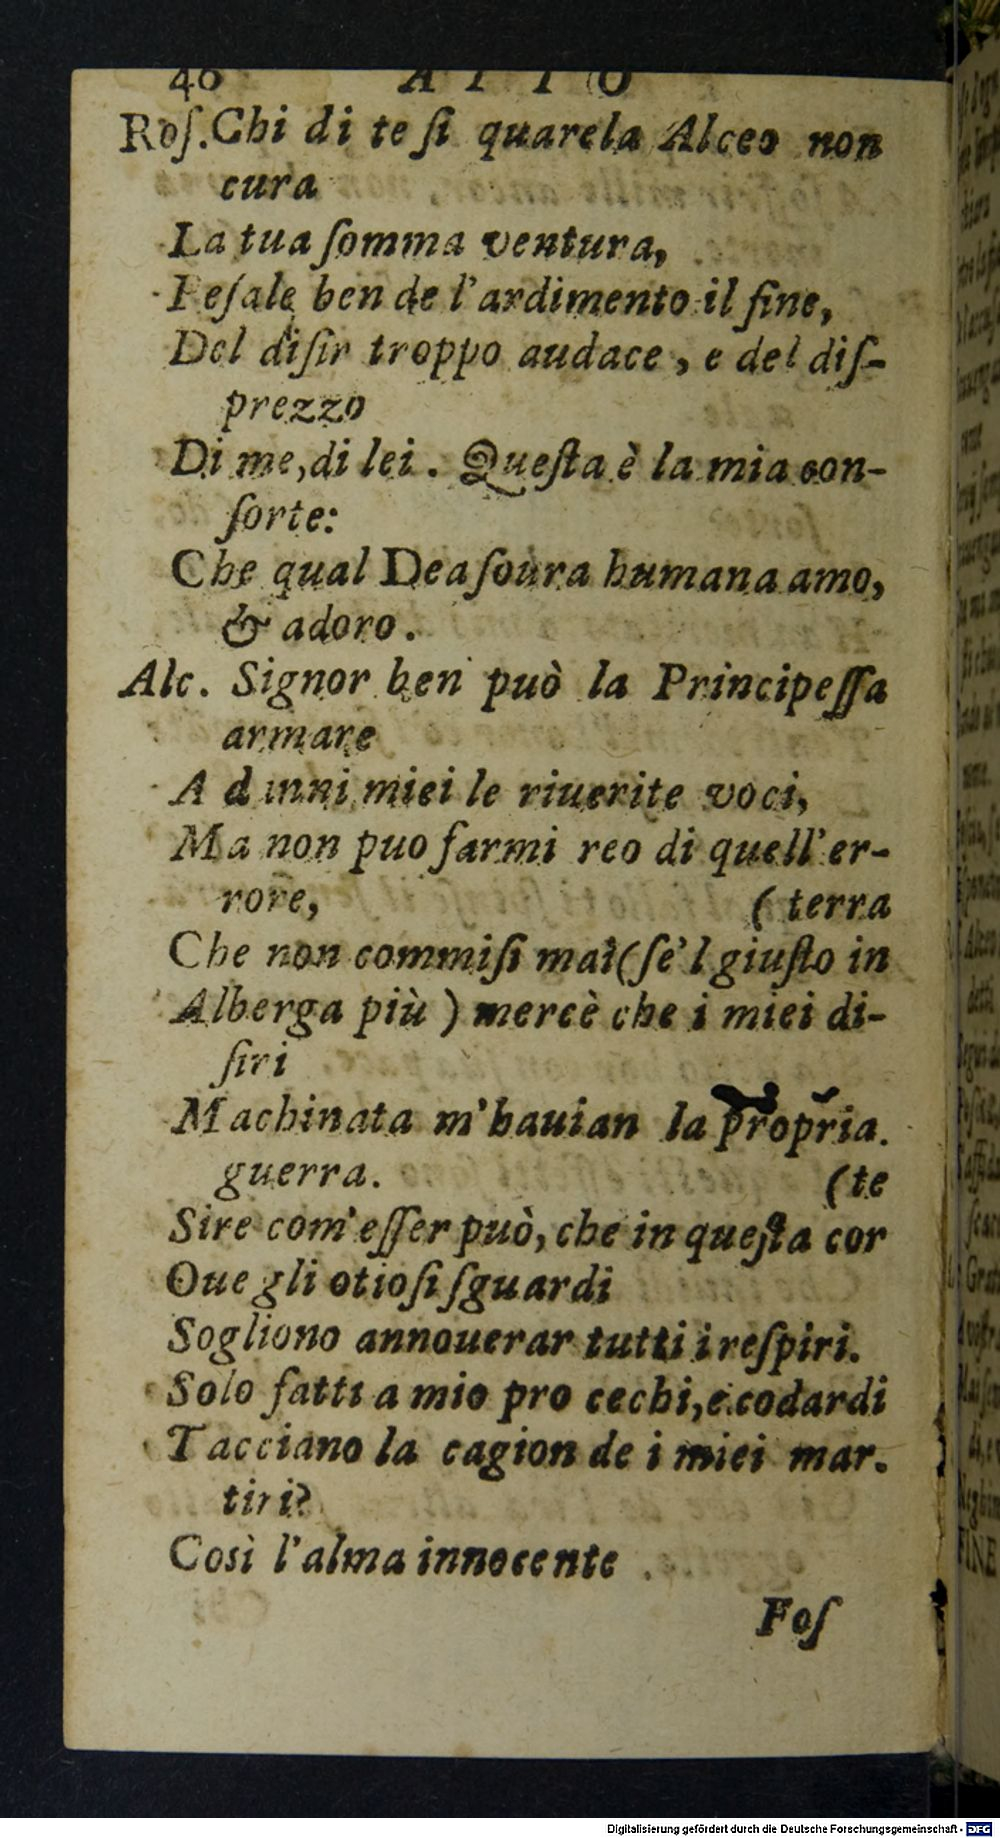 40 ATTO
Roſ. Chi di te ſi quarela Alceo non
cura
La tua ſomma ventura,
Peſale ben de l'ardimento il fine,
Del diſir troppo audace, e del diſ-
prezzo
Di me, di lei. Queſta è la mia con-
ſorte:
Che qual Dea ſoura humana amo,
& adoro.
Alc. Signor ben può la Principeſſa
armare
A danni miei le riuerite voci,
Ma non puo farmi reo di quell'er-
rore, (terra
Che non commiſi mai (ſe'l giuſto in
Alberga più) mercè che i miei di-
ſiri
Machinata m'hauian la propria
guerra. (te
Sire com'eſſer può, che in queſta cor
Oue gli otioſi ſguardi
Sogliono annouerar tutti i reſpiri.
Solo fatti a mio pro cechi, e codardi
Tacciano la cagion de i miei mar-
tiri?
Così l'alma innocente
Foſ
Digitalisierung gefördert durch die Deutsche Forschungsgemeinschaft - DFG